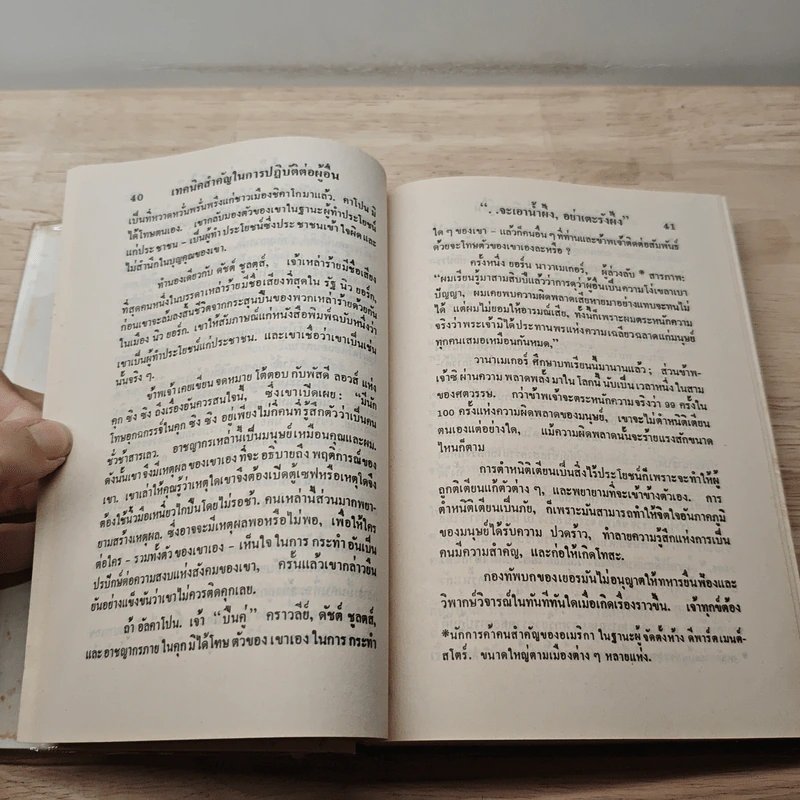 40 เทคนิคสำคัญในการปฏิบัติต่อผู้อื่น
เป็นที่หวาดหวั่นพรั่นพรึงแก่ชาวเมืองชิคาโกมาแล้ว. คาโปน มิ
ได้โทษตนเอง. เขากลับมองตัวของเขาในฐานะผู้ทำประโยชน์
แก่ประชาชน – เป็นผู้ทำประโยชน์ซึ่งประชาชนเข้าใจผิด และ
ไม่สำนึกในบุญคุณของเขา.
ทำนองเดียวกับ ดัชต์ ชูลตส์, เจ้าเหล่าร้ายมีชื่อเสียง
ที่สุดคนหนึ่งในบรรดาเหล่าร้ายมีชื่อเสียงที่สุดใน รัฐ นิว ยอร์ก,
ก่อนเขาจะล้มลงสิ้นชีวิตจากกระสุนปืนของพวกเหล่าร้ายด้วยกัน
ในเมือง นิว ยอร์ก. เขาให้สัมภาษณ์แก่หนังสือพิมพ์ฉบับหนึ่งว่า
เขาเป็นผู้ทำประโยชน์แก่ประชาชน. และเขาเชื่อว่าเขาเป็นเช่น
นั้นจริง ๆ.
ข้าพเจ้าเคยเขียน จดหมาย โต้ตอบ กับพัสดี ลอวส์ แห่ง
คุก ซิง ซิง ถึงเรื่องอันควรสนใจนี้, ซึ่งเขาเปิดเผย: “มีนัก
โทษอุกฉกรรจ์ในคุก ซิง ซิง อยู่เพียงไม่กี่คนที่รู้สึกตัวว่าเป็นคน
ชั่วช้าสารเลว. อาชญากรเหล่านี้เป็นมนุษย์เหมือนคุณและผม.
ดังนั้นเขา จึงมีเหตุผล ของเขาเอง ที่จะ อธิบายถึง พฤติการณ์ของ
เขา. เขาเล่าให้คุณรู้ว่าเหตุใดเขาจึงต้องเปิดตู้เซฟหรือเหตุใดจึง
ต้องใช้นิ้วมือเหนี่ยวไกปืนโดยไม่รอช้า. คนเหล่านี้ส่วนมากพยา-
ยามสร้างเหตุผล, ซึ่งอาจจะมีเหตุผลพอหรือไม่พอ, เพื่อให้ใคร
ต่อใคร – รวมทั้งตัวของเขาเอง – เห็นใจ ในการ กระทำ อันเป็น
ปรปักษ์ต่อความสงบแห่งสังคมของเขา, ครั้นแล้วเขากล่าวยืน
ยันอย่างแข็งขันว่าเขาไม่ควรติดคุกเลย.
ถ้า อัลคาโปน. เจ้า “ปืนคู่” คราวลีย์, ดัชต์ ชูลตส์,
และ อาชญากรภายในคุก มิได้โทษ ตัวของ เขาเอง ในการ กระทำ
“..จะเอาน้ำผึ้ง, อย่าเตะรังผึ้ง” 41
ใด ๆ ของเขา – แล้วก็คนอื่น ๆ ที่ท่านและข้าพเจ้าติดต่อสัมพันธ์
ด้วยจะโทษตัวของเขาเองละหรือ ?
ครั้งหนึ่ง ยอร์น นาวาเมเกอร์, ผู้ล่วงลับ * สารภาพ:
“ผมเรียนรู้มาสามสิบปีแล้วว่าการดุว่าผู้อื่นเป็นความโง่เขลาเบา
ปัญญา, ผมเคยพบความผิดพลาดเสียหายมาอย่างแทบจะทนไม่
ได้ แต่ผมไม่ยอมให้อารมณ์เสีย, ทั้งนี้ก็เพราะผมตระหนักความ
จริงว่าพระเจ้ามิได้ประทานพรแห่งความเฉลียวฉลาดแก่มนุษย์
ทุกคนเสมอเหมือนกันหมด,”
วานาเมเกอร์ ศึกษาบทเรียนนี้มานานแล้ว; ส่วนข้าพ-
เจ้าซิ ผ่านความ พลาดพลั้ง มาใน โลกนี้ นับเป็น เวลาหนึ่ง ในสาม
ของศตวรรษ. กว่าข้าพเจ้าจะตระหนักความจริงว่า 99 ครั้งใน
100 ครั้งแห่งความผิดพลาดของมนุษย์, เขาจะไม่ตำหนิติเตียน
ตนเองแต่อย่างใด, แม้ความผิดพลาดนั้นจะร้ายแรงสักขนาด
ไหนก็ตาม
การตำหนิติเตียนเป็นสิ่งไร้ประโยชน์ก็เพราะจะทำให้ผู้
ถูกติเตียนแก้ตัวต่าง ๆ, และพยายามที่จะเข้าข้างตัวเอง. การ
ตำหนิติเตียนเป็นภัย, ก็เพราะมันสามารถทำให้จิตใจอันภาคภูมิ
ของมนุษย์ได้รับความ ปวดร้าว, ทำลายความรู้สึกแห่งการเป็น
คนมีความสำคัญ, และก่อให้เกิดโทสะ.
กองทัพบกของเยอรมันไม่อนุญาตให้ทหารยื่นฟ้องและ
วิพากษ์วิจารณ์ในทันทีทันใดเมื่อเกิดเรื่องราวขึ้น. เจ้าทุกข์ต้อง
*นักการค้าคนสำคัญของอเมริกา ในฐานะผู้จัดตั้งห้าง ดีพาร์ตเมนต์-
สโตร์. ขนาดใหญ่ตามเมืองต่าง ๆ หลายแห่ง.